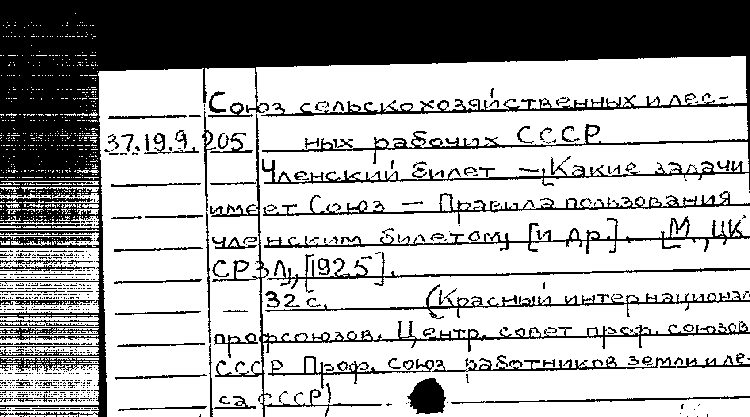 Союз сельскохозяйственных и лес-
37.19.9.205 ных рабочих СССР
Членский билет — [Какие задачи
имеет Союз — Правила пользования
членским билетом, [и др.]. [М., ЦК
СРЗЛ, [1925].
32 с. (Красный интернационал
профсоюзов. Центр. совет проф. союзов
СССР. Проф. союз работников земли и ле-
са СССР).